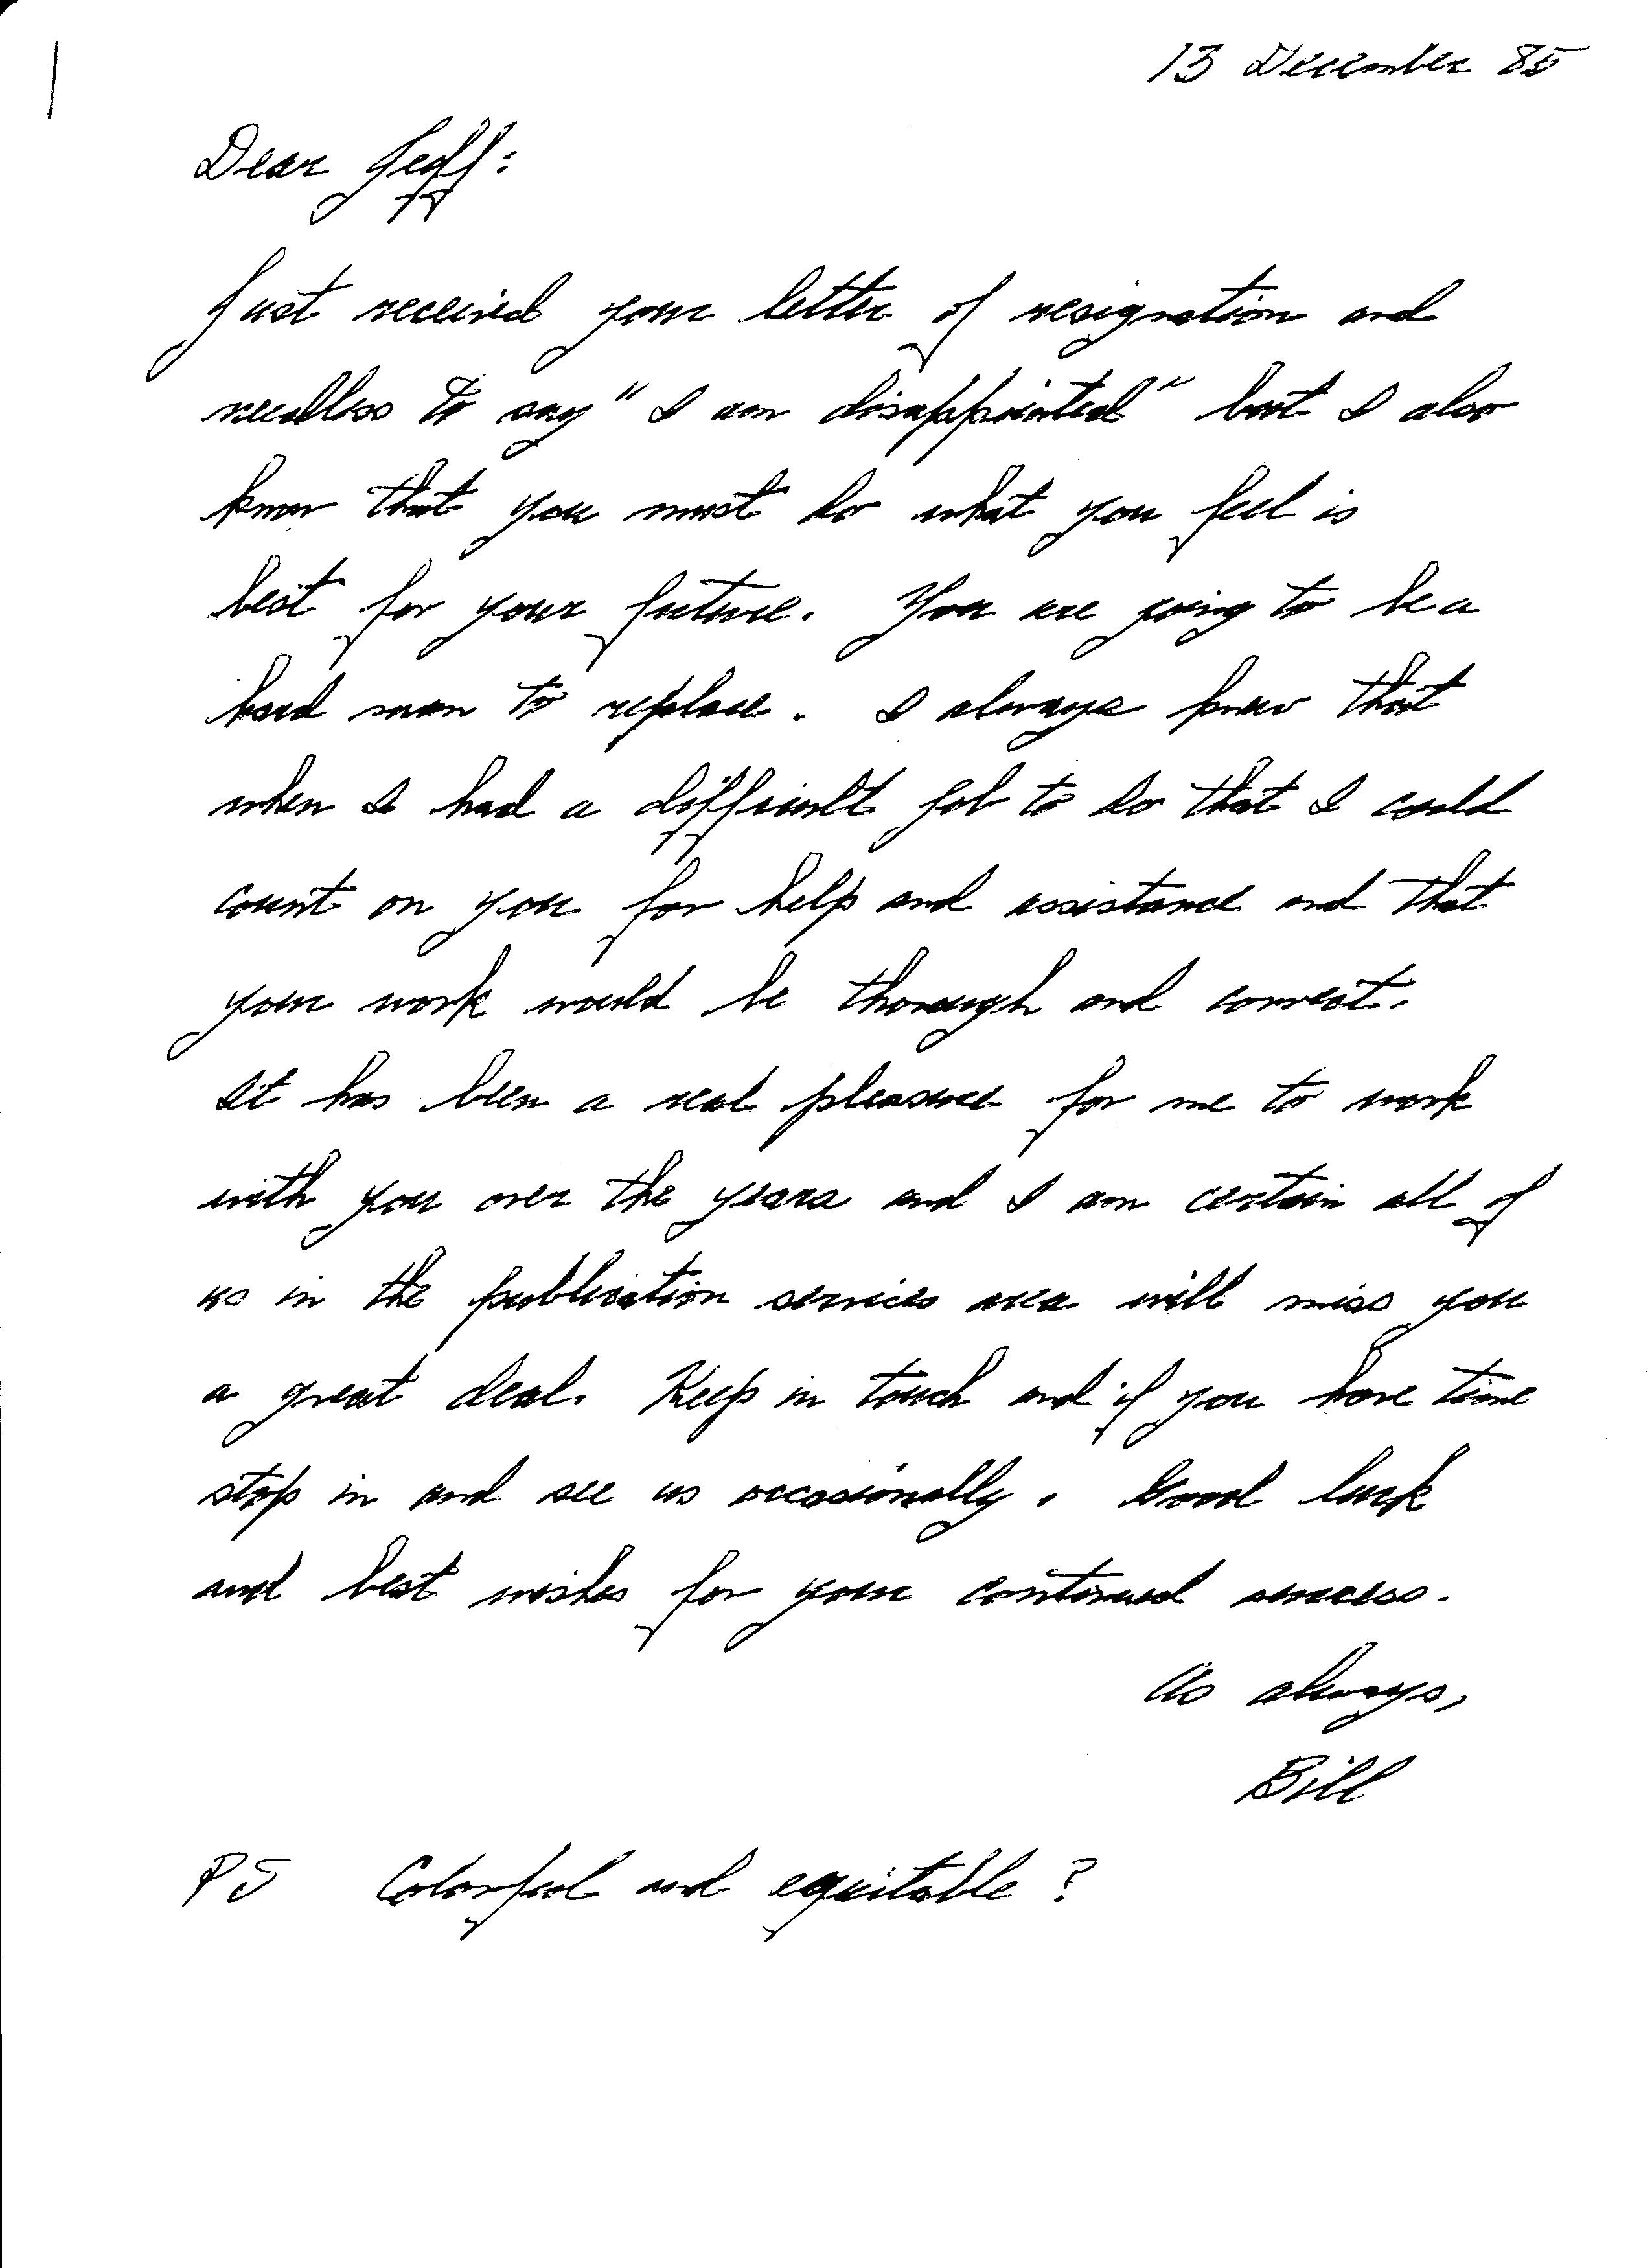 13 December 85
Dear Jeff:
Just received your letter of resignation and
needless to say "I am disappointed" but I also
know that you must do what you feel is
best for your future. You are going to be a
hard man to replace. I always knew that
when I had a difficult job to do that I could
count on you for help and assistance and that
your work would be thorough and correct.
It has been a real pleasure for me to work
with you over the years and I am certain all of
us in the publication services area will miss you
a great deal. Keep in touch and if you have time
stop in and see us occasionally. Good luck
and best wishes for your continued success.
As always,
Bill
PS Colorful and equitable?